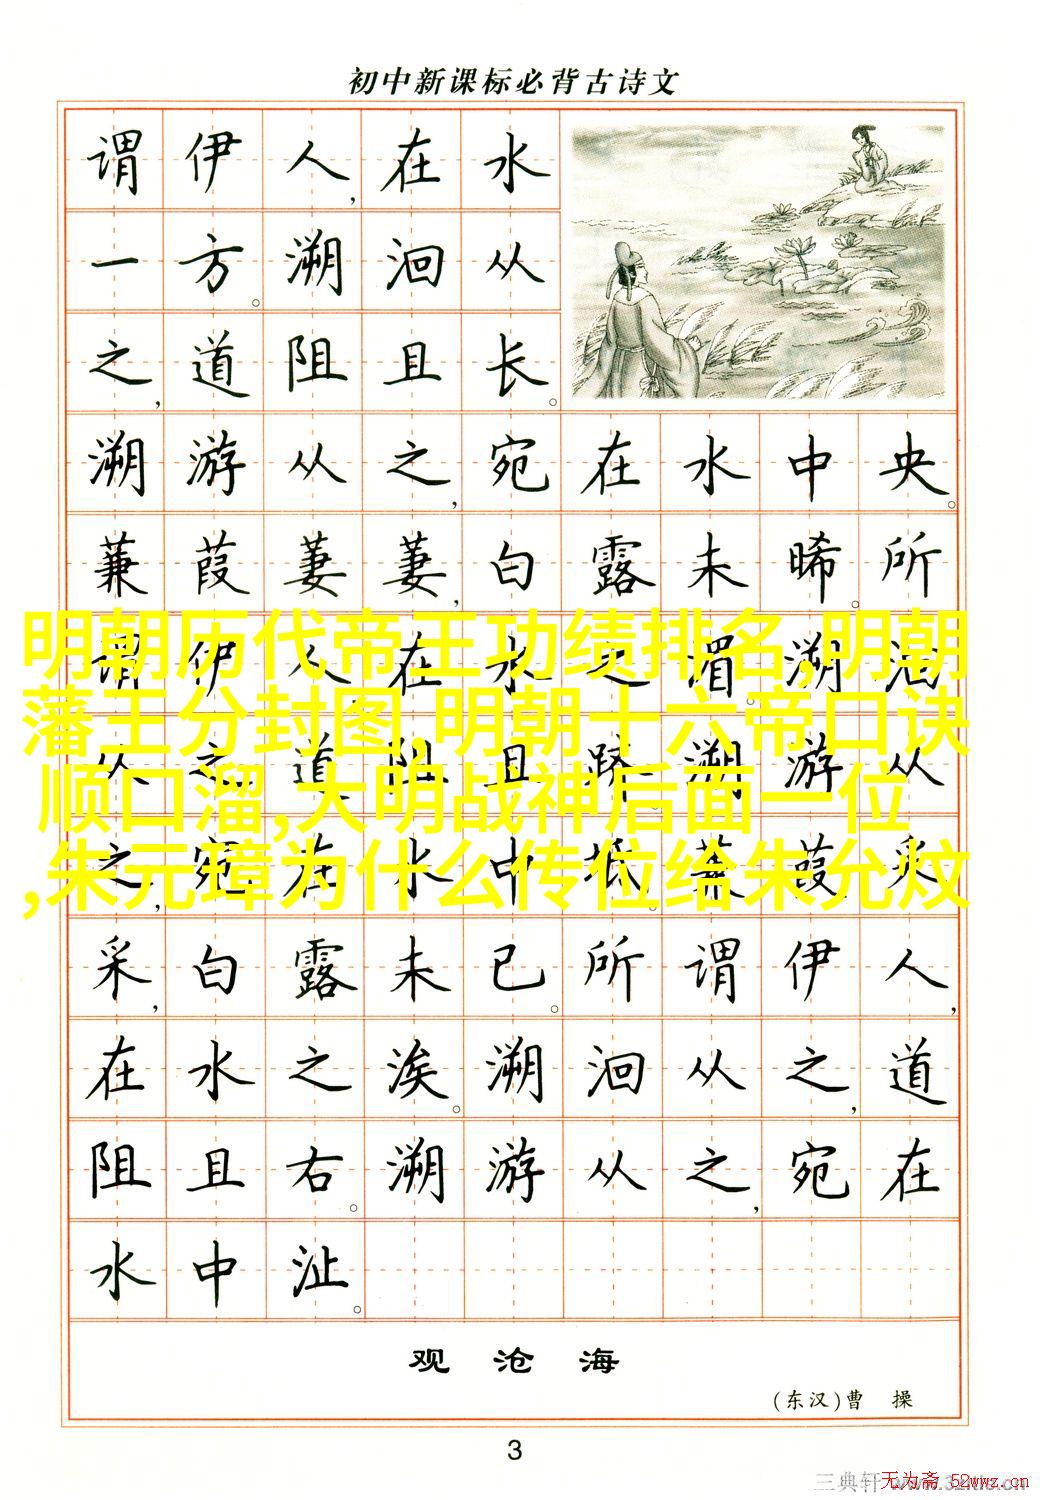 初中新课标必背古诗文
谓伊人，在水
一方。溯洄从
之，道阻且长。
溯游从之，宛在水中央。
蒹葭萋萋，白露未晞。所
谓伊人，在水之湄。溯洄
从之，道阻且跻。溯游从
之，宛在水中坻。蒹葭采
采，白露未已。所谓伊人，
在水之涘。溯洄从之，道
阻且右。溯游从之，宛在
水中沚。
明朝历代帝王功绩排名,明朝
藩王分封图,明朝十六帝口诀
顺口溜,大明战神后面一位
,朱元璋为什么传位给朱允炆
观沧海
(东汉)曹 操
3
三典轩
无为斋 52wwz.cn